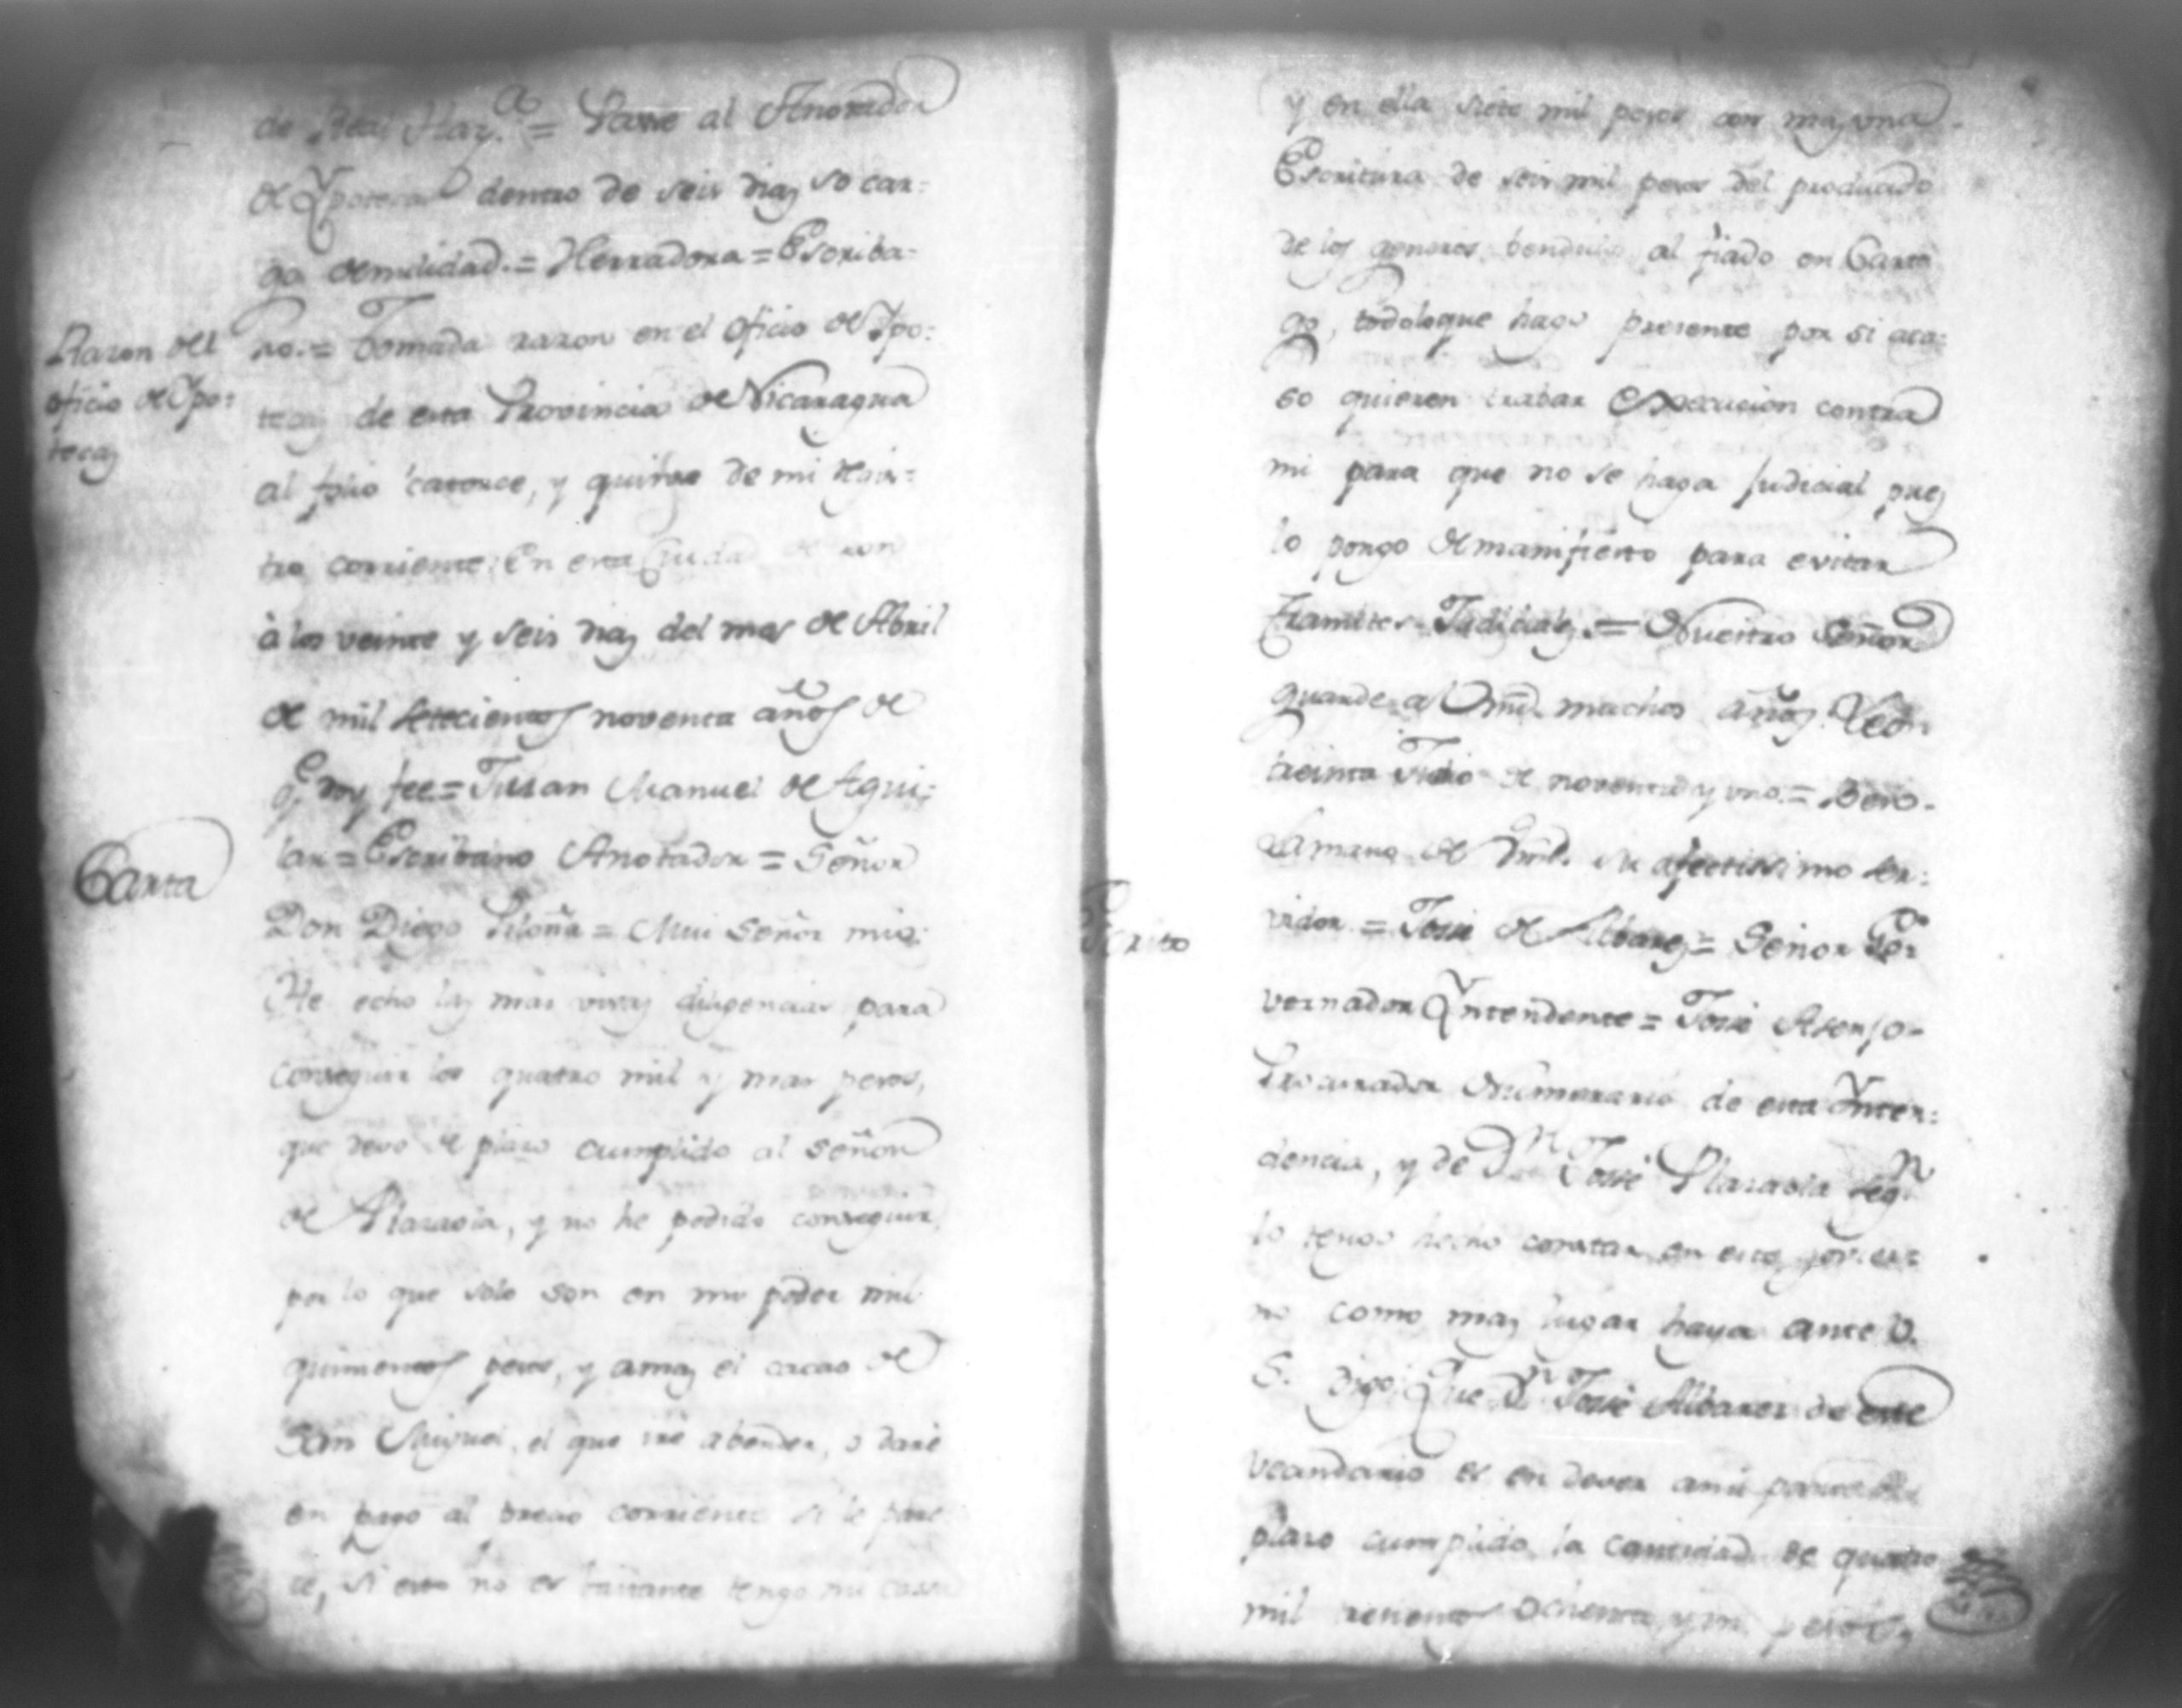 de Real Haz.a = Pase al Anotador
de Ypotecas dentro de seis dias so car=
go de nulidad. = Herradora = Escriba=
Razon del
oficio de Ypo=
tecas
no. = Tomada razon en el oficio de Ypo=
tecas de esta Provincia de Nicaragua
al folio catorce, y quinze de mi regis=
tro corriente. En esta Ciudad de Leon
à los veinte y seis dias del mes de Abril
de mil setecientos noventa años de
q.e doy fee = Juan Manuel de Agui=
Carta
lar = Escribano Anotador = Señor
Don Diego Piloña = Mui Señor mio:
He echo las mas vivas diligencias para
conseguir los quatro mil y mas pesos,
que devo de plazo cumplido al Señor
de Plazaola, y no he podido conseguir,
por lo que solo son en mi poder mil
quinientos pesos, y amas el cacao de
San Miguel, el que iré a bender, o daré
en pago al precio corriente si le pare
ce, si esto no es bastante tengo mi casa
y en ella siete mil pesos con mas una
Escritura de seis mil pesos del producido
de los generos bendidos al fiado en Carta
go, todo lo que hago presente por si aca=
so quieren trabar execucion contra
mi para que no se haga Judicial pues
lo pongo de manifiesto para evitar
tramites Judiciales. = Nuestro Señor
guarde a Vmd. muchos años. Leon
treinta Julio de noventa y uno. = Beso
la mano de Vmd. su afectissimo ser=
Escrito
vidor = José de Albarez = Señor Go
vernador Yntendente = José Asenjo
Procurador Numerario de esta Ynten=
dencia, y de Dn José Plazaola segn
lo tengo hecho constar en este
no como mas lugar haya ante V.
S. digo: Que Dn José Albarez de este
vecindario es en dever a mi parte de
plazo cumplido la cantidad de quatro
mil trecientos ochenta y un pesos,